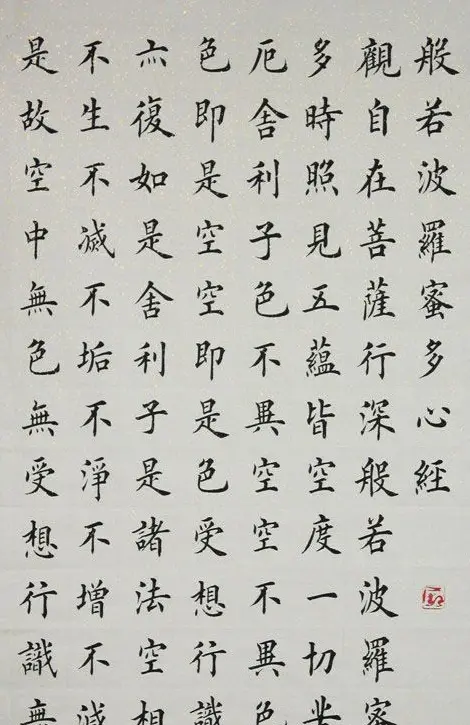 般若波羅蜜多心經
觀自在菩薩行深般若波羅蜜
多時照見五蘊皆空度一切苦
厄舍利子色不異空空不異色
色即是空空即是色受想行識
亦復如是舍利子是諸法空相
不生不滅不垢不淨不增不減
是故空中無色無受想行識無